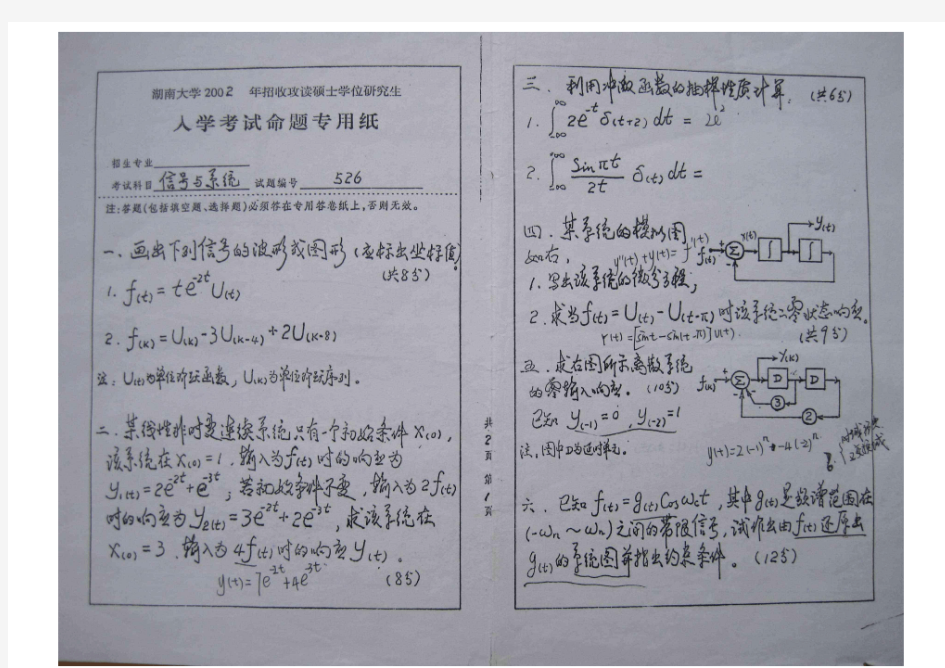 湖南大学2002 年招收攻读硕士学位研究生
入学考试命题专用纸
招生专业
考试科目 信号与系统 试题编号 526
注:答题(包括填空题、选择题)必须答在专用答卷纸上,否则无效。
一、画出下列信号的波形或图形(应标出坐标值)
(共8分)
1. f(t)=te^{-2t}U(t)
2. f(k)=U(k)-3U(k-4)+2U(k-8)
注:U(t)为单位阶跃函数,U(k)为单位阶跃序列。
二、某线性非时变连续系统只有一个初始条件X(0),
该系统在X(0)=1、输入为f(t)时的响应为
y₁(t)=2e^{-2t}+e^{-3t};若初始条件不变,输入为2f(t)
时的响应为y₂(t)=3e^{-2t}+2e^{-3t},求该系统在
X(0)=3、输入为4f(t)时的响应y(t)。
y(t)=7e^{-2t}+4e^{-3t}
(8分)
共2页 第1页
三、利用冲激函数的抽样性质计算。(共6分)
1. ∫_{-∞}^{+∞} 2e^{-t}δ(t+2)dt = 2e²
2. ∫_{-∞}^{+∞} \frac{Sinπt}{2t} δ(t)dt =
四、某系统的模拟图
如右, y''(t)+y(t)=f'(t)
f(t) + Σ x(t) ∫ ∫ y(t) −
1. 写出该系统的微分方程;
2. 求当f(t)=U(t)-U(t-π)时该系统之零状态响应。
y(t)=[sint-sin(t-π)]u(t). (共9分)
五、求右图所示离散系统
的零输入响应。(10分)
已知 y(-1)=0, y(-2)=1
注:图中D为延时单元。
f(k) + Σ D D y(k) − − 3 2
y(t)=2(-1)ⁿ-4(-2)ⁿ
六、已知f(t)=g(t)Cosω₀t,其中g(t)是频谱范围在
(-ωₙ~ωₙ)之间的带限信号,试作出由f(t)还原出
g(t)的系统图并指出约束条件。(12分)